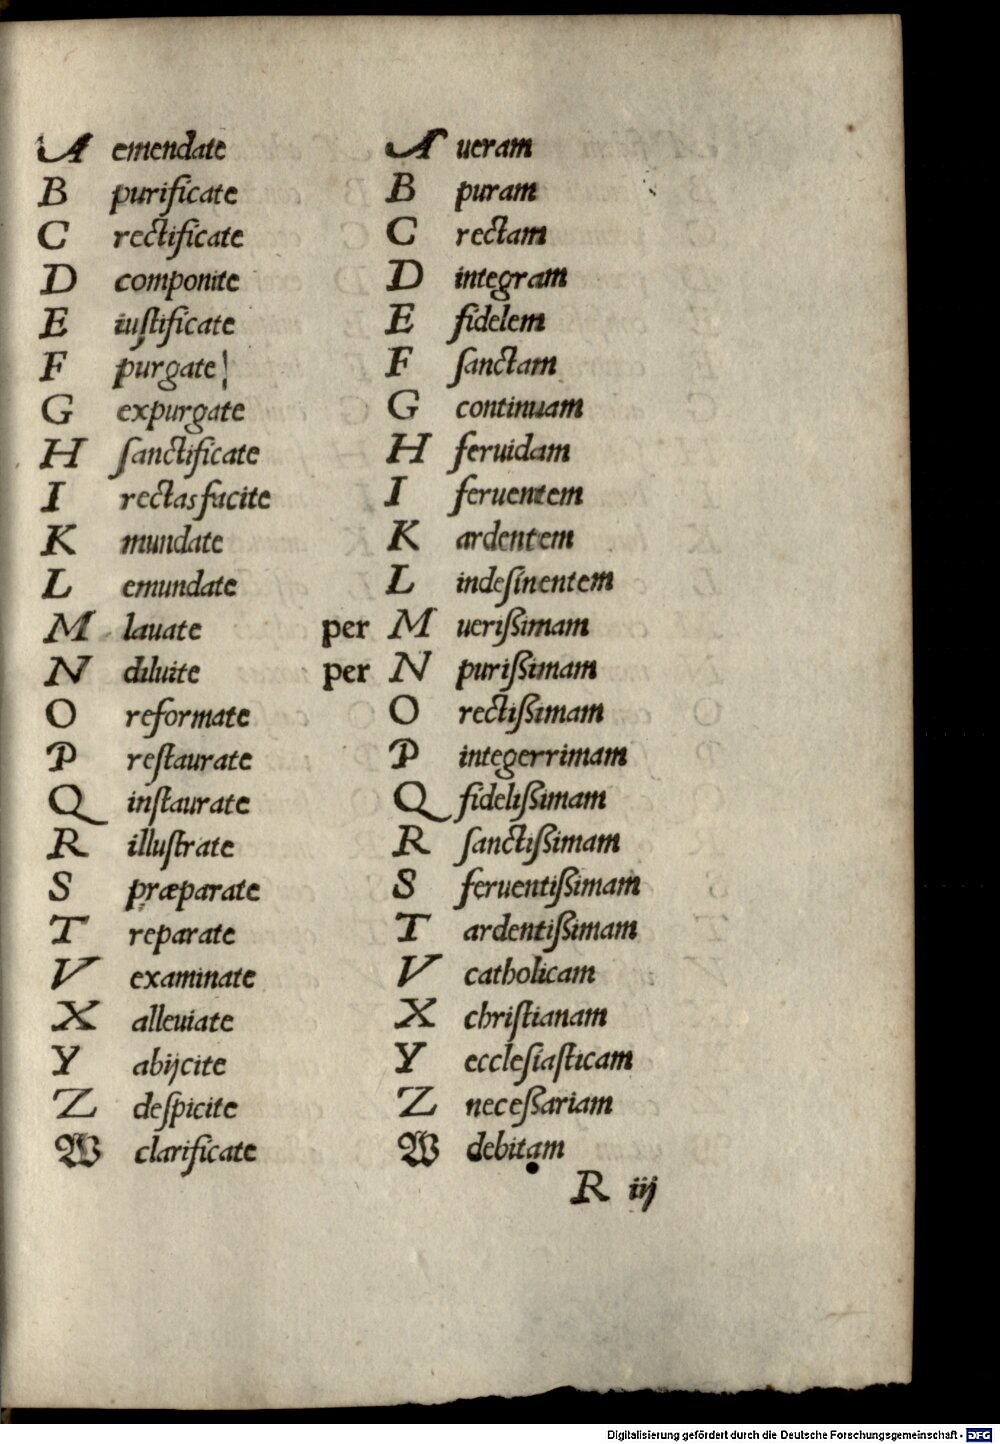 A emendate A ueram
B purificate B puram
C rectificate C rectam
D componite D integram
E iuſtificate E fidelem
F purgate F ſanctam
G expurgate G continuam
H ſanctificate H feruidam
I rectas facite I feruentem
K mundate K ardentem
L emundate L indeſinentem
M lauate per M ueriſſimam
N diluite per N puriſſimam
O reformate O rectiſſimam
P reſtaurate P integerrimam
Q inſtaurate Q fideliſſimam
R illuſtrate R ſanctiſſimam
S præparate S feruentiſſimam
T reparate T ardentiſſimam
V examinate V catholicam
X alleuiate X chriſtianam
Y abijcite Y eccleſiaſticam
Z deſpicite Z neceſſariam
W clarificate W debitam
R iij
Digitalisierung gefördert durch die Deutsche Forschungsgemeinschaft - DFG